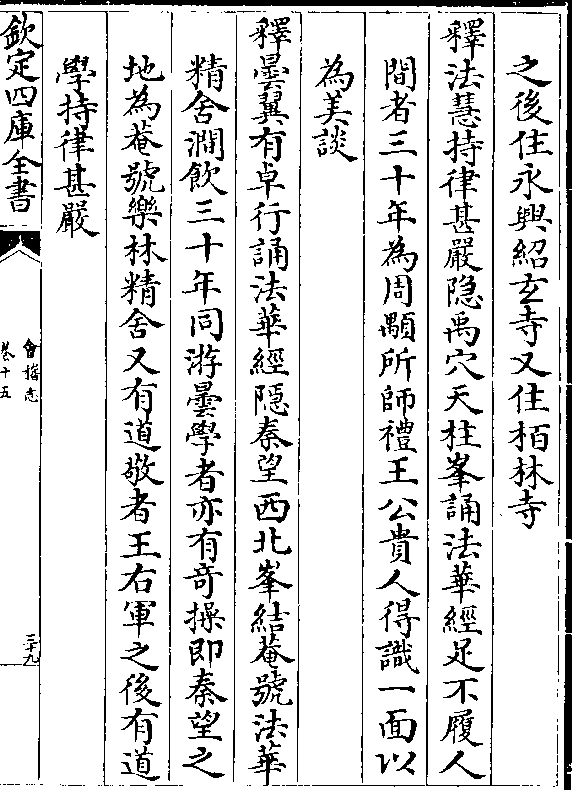 之後住永興紹玄寺又住栢林寺
釋法慧持律甚嚴隐禹穴天柱峯誦法華經足不履人
間者三十年為周顒所師禮王公貴人得識一面以
為美談
釋曇翼有卓行誦法華經隱秦望西北峯結菴號法華
精舍澗飲三十年同游曇學者亦有竒操即秦望之
地為菴號樂林精舍又有道敬者王右軍之後有道
學持律甚嚴
欽定四庫全書
會稽志
卷十五
三十九